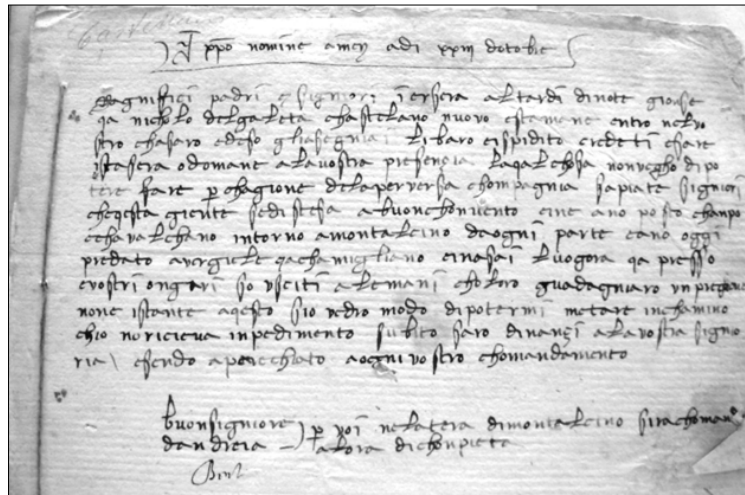 xpo nomine amen adi xxiii dotobre
Magnifici padri e signiori iersera al tardi dinote gionse
qa nicholo delgaleta chastelano nuovo estamane entro nelvo
stro chasaro edeso gliasegniai libaro eispidito credeti esare
istasera odomane alavostra presencia laqalchosa nonvegho dipo
tere fare p chagione delaperversa chompagnia sapiate signiori
cheqesta giente sedistesa abuonchonvento eine ano posto chanpo
echavalchano intorno amontalcino daogni parte eano oggi
predato avergiele qachamigliano einasai luogora qa presso
evostri ongari so usciti alemani choloro guadagniaro un pregione
none istante aqesto sio vedro modo dipotermi metare inchamino
chio noricieva inpedimento subito saro dinanzi alavostra signo
ria esendo aperechiato aogni vostro chomandamento
buonsigniore p voi nelatera dimontalcino sirachoman
dandreia alora dichonpieta